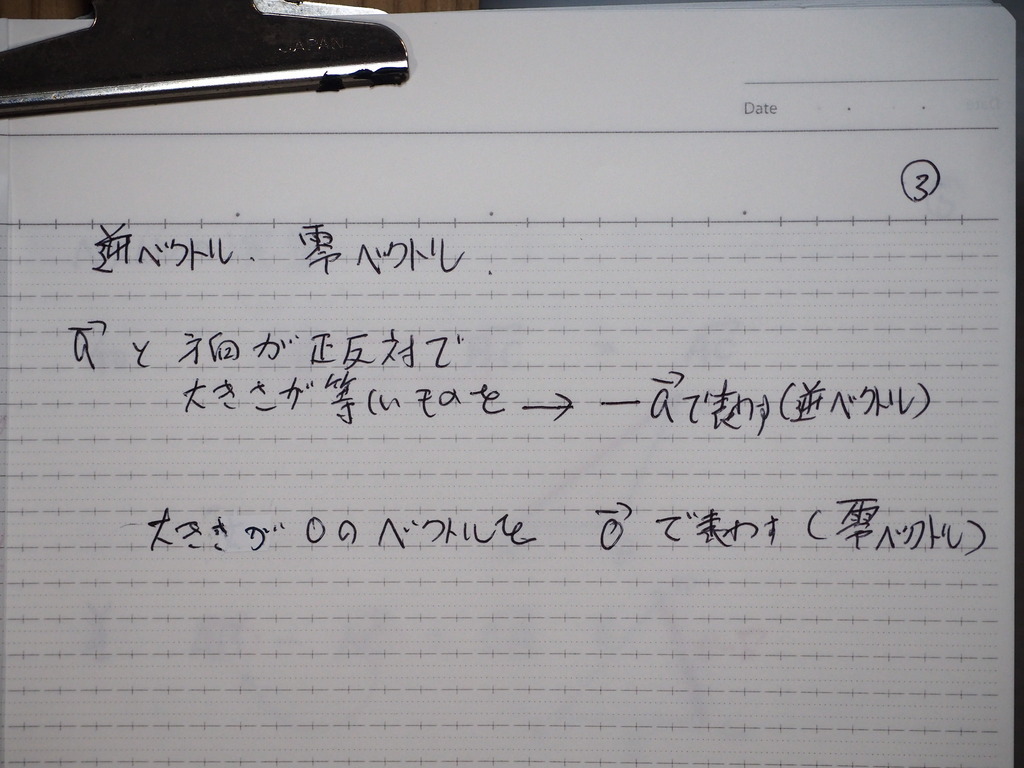 JAPAN
Date
③
逆ベクトル. 零ベクトル.
a→ と 方向が正反対で
大きさが等しいものを → -a→で表わす(逆ベクトル)
大きさが 0の ベクトルを 0→ で表わす (零ベクトル)